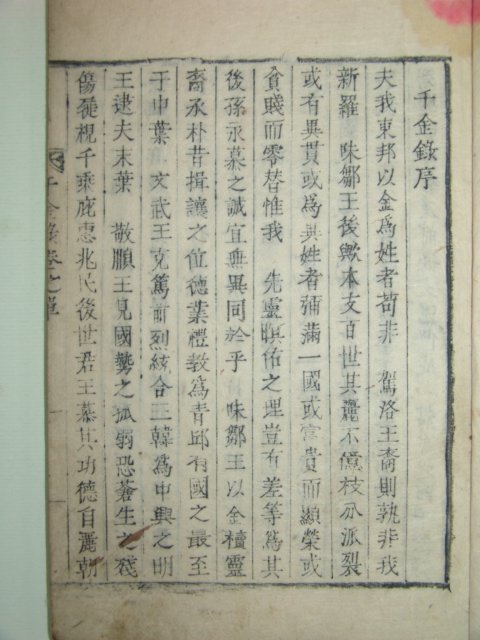 千金錄序
夫我東邦以金爲姓者苟非 駕洛王裔則孰非我
新羅 味鄒王後歟本支百世其麗不億枝分派裂
或有異貫或爲異姓者彌滿一國或富貴而顯榮或
貧賤而零替惟我 先靈暝佑之理豈有差等爲其
後孫永慕之誠宜無異同於乎 味鄒王以金櫝靈
裔承朴昔揖讓之位德業禮敎爲靑邱有國之最至
于中葉 文武王克篤前烈統合三韓爲中興之明
王逮夫末葉 敬順王見國勢之孤弱恐蒼生之殘
傷蓰視千乘庇惠兆民後世君王慕其功德自麗朝
千金錄卷之單